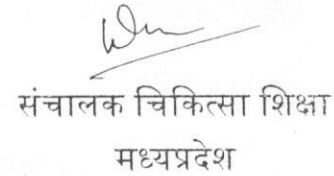 संचालक चिकित्सा शिक्षा
मध्यप्रदेश